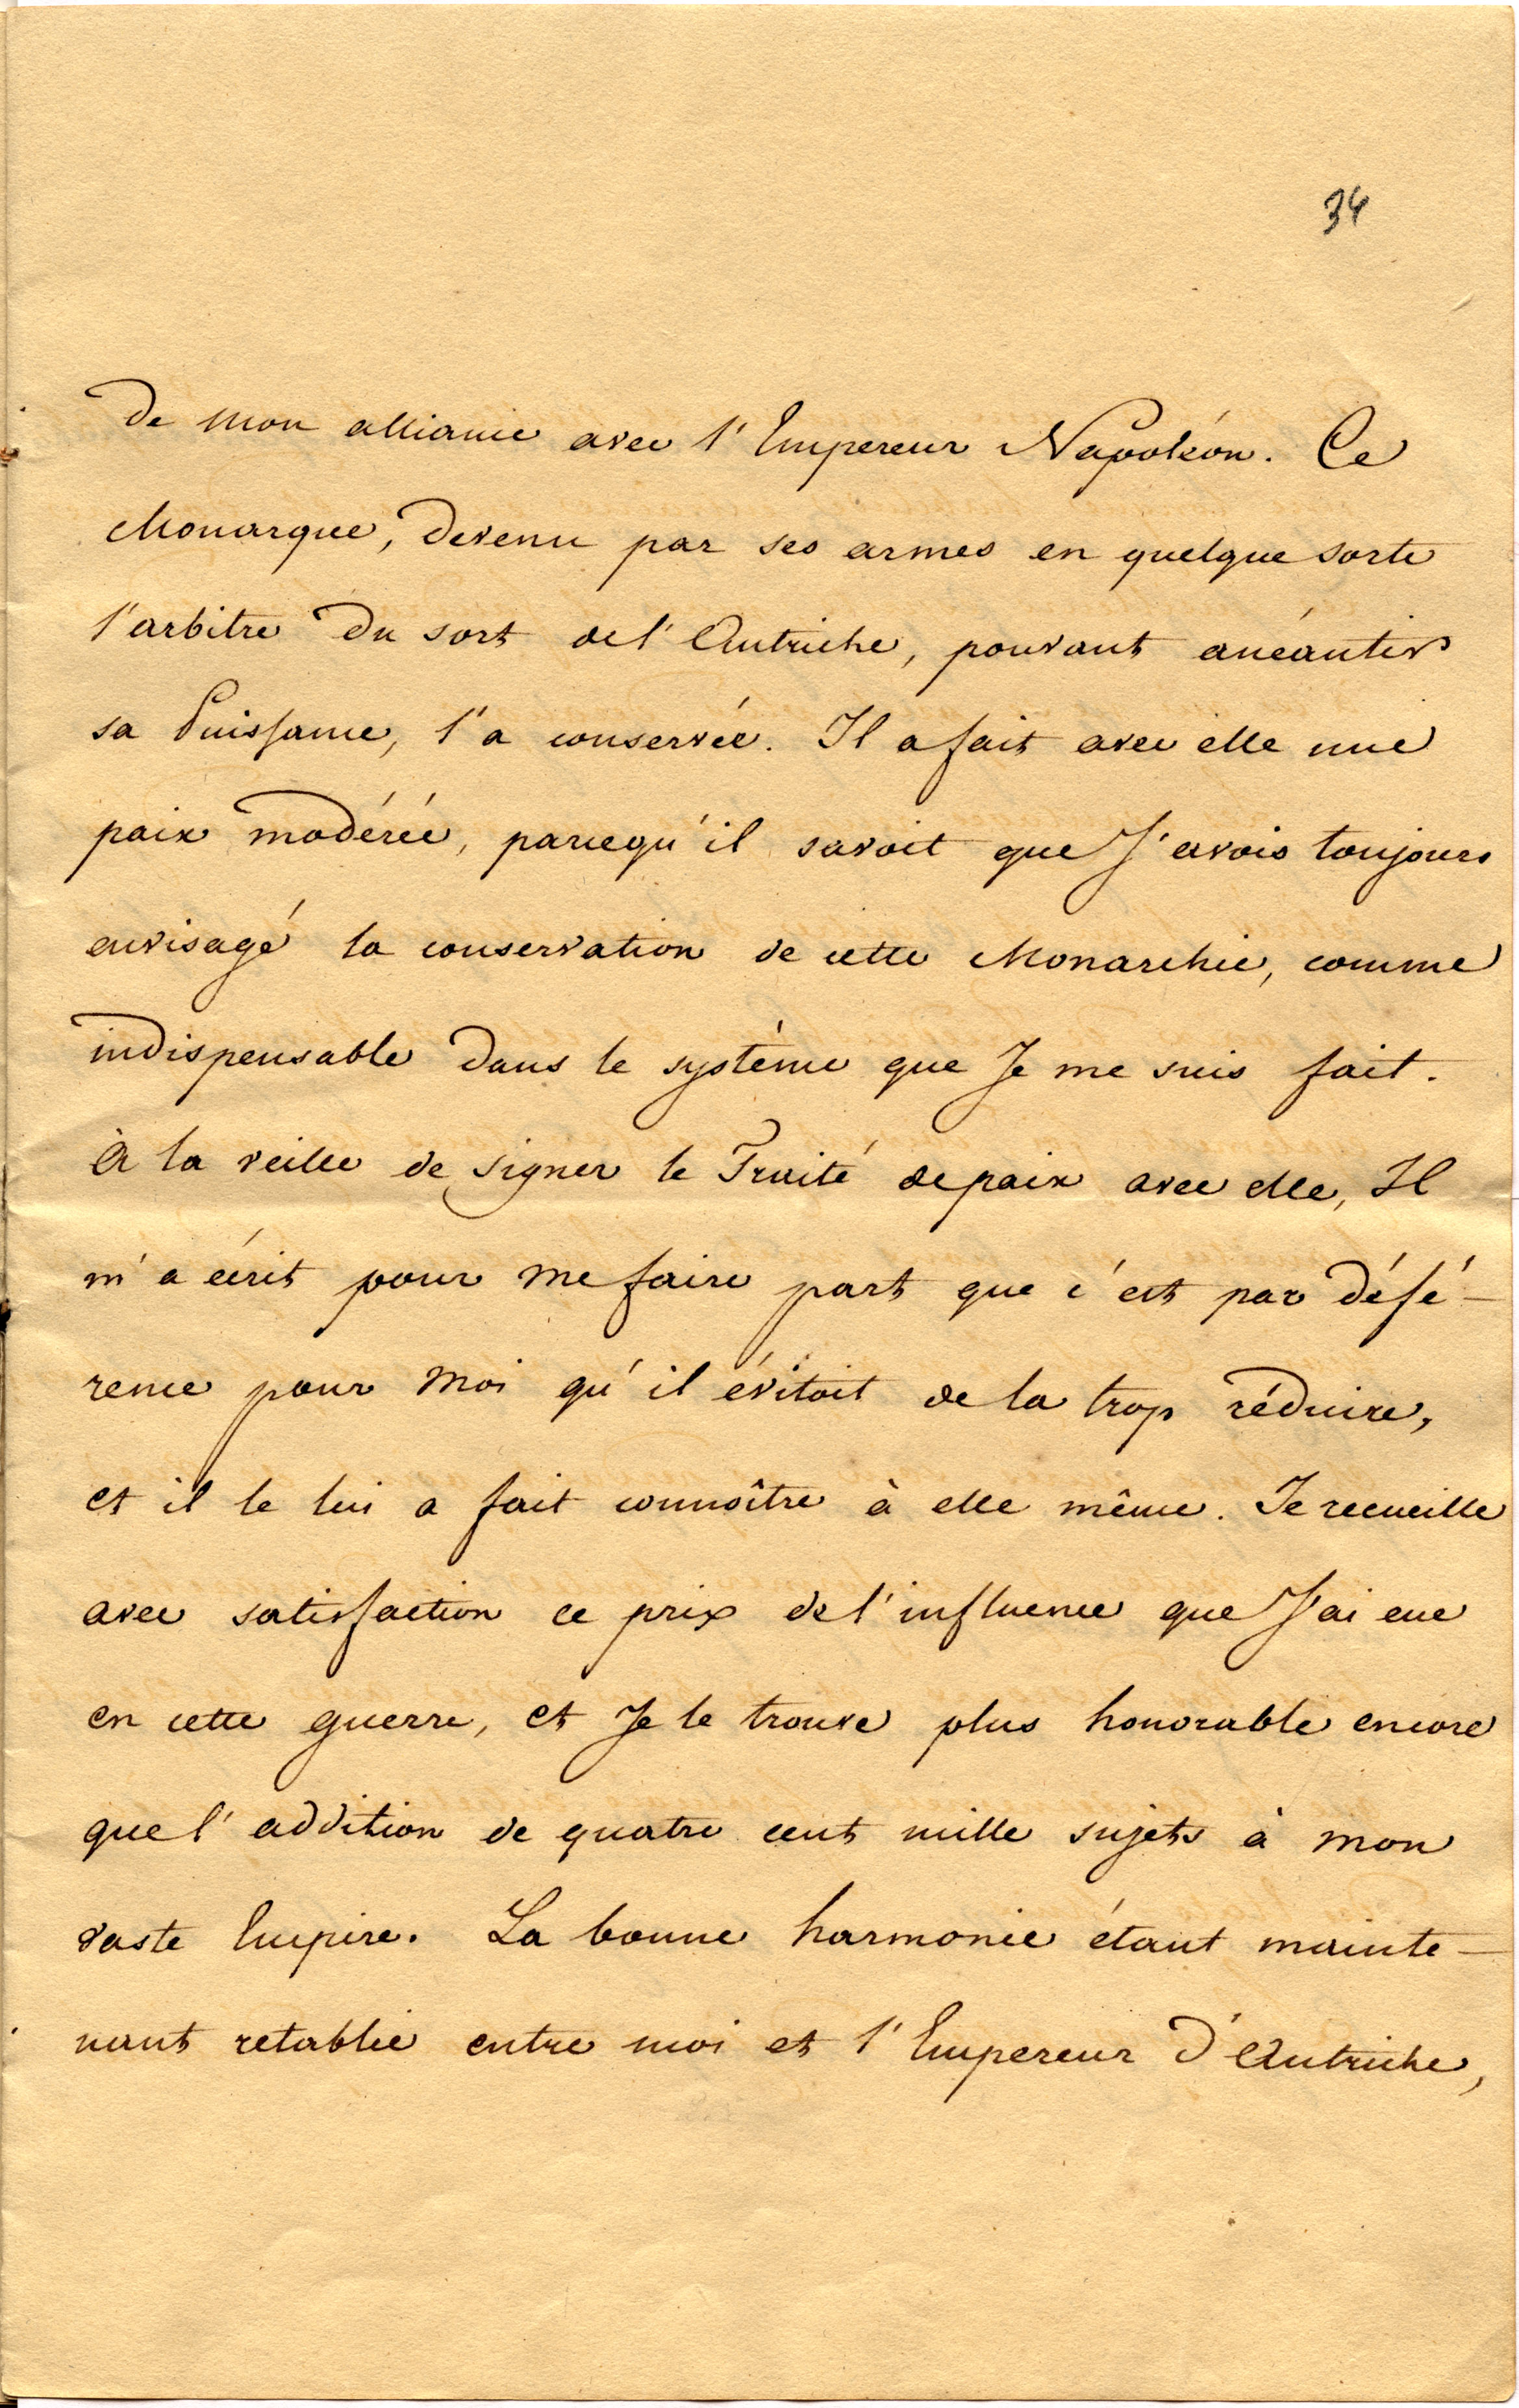 34
de mon alliance avec l'Empereur Napoléon. Ce
Monarque, devenu par ses armes en quelque sorte
l'arbitre du sort de l'Autriche, pouvant anéantir
sa Puissance, l'a conservée. Il a fait avec elle une
paix modérée, parcequ'il savoit que J'avois toujours
envisagé la conservation de cette Monarchie, comme
indispensable dans le système que Je me suis fait.
à la veille de signer le Traité de paix avec elle, Il
m'a écrit pour me faire part que c'est par défé-
rence pour Moi qu'il évitoit de la trop réduire,
et il le lui a fait connoître à elle même. Je recueille
avec satisfaction ce prix de l'influence que J'ai eue
en cette guerre, et Je le trouve plus honorable encore
que l'addition de quatre cent mille sujets à mon
vaste Empire. La bonne harmonie étant mainte-
nant retablie entre moi et l'Empereur d'Autriche,